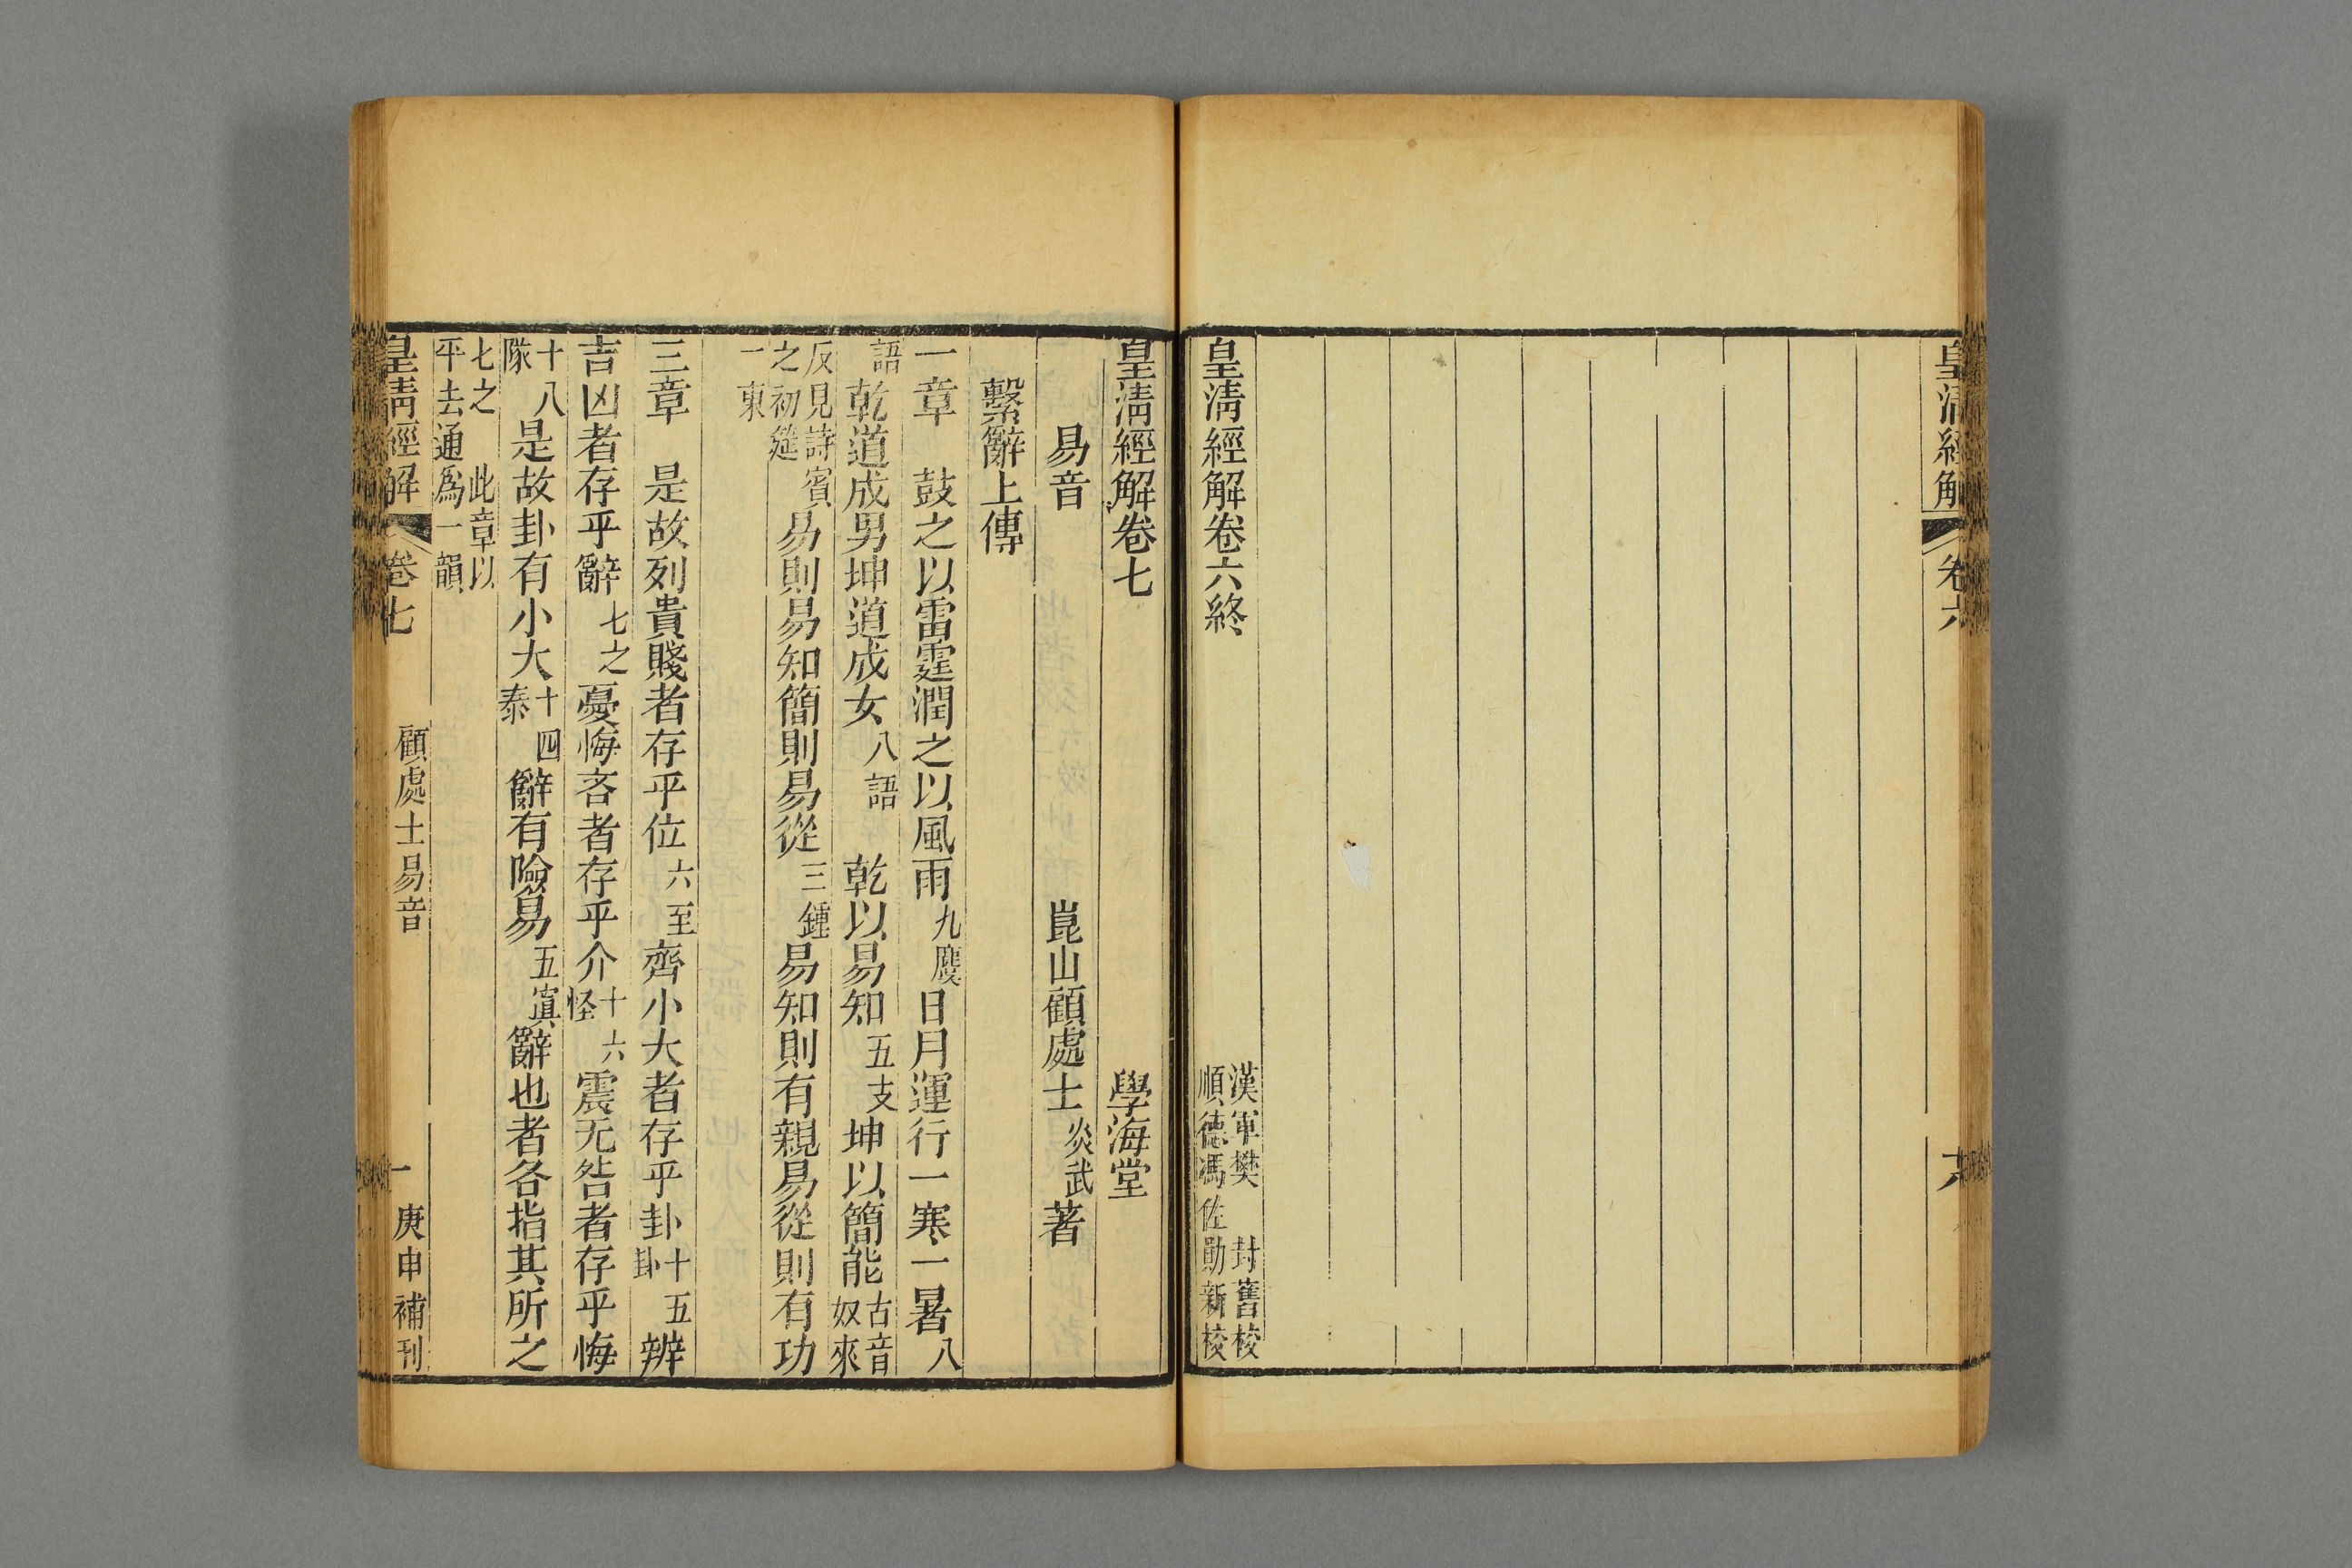 皇清經解
卷六
六
皇清經解卷六終
漢軍樊 封舊校
順德馮佐勛新校
皇清經解卷七 學海堂
易音 崑山顧處士炎武著
繫辭上傳
一章 鼓之以雷霆潤之以風雨九麌日月運行一寒一暑八
語乾道成男坤道成女八語 乾以易知五支坤以簡能古音奴來
反見詩賓之初筵易則易知簡則易從三鍾易知則有親易從則有功
一東
三章 是故列貴賤者存乎位六至齊小大者存乎卦十五卦辨
吉凶者存乎辭七之憂悔吝者存乎介十六怪震无咎者存乎悔
十八隊是故卦有小大十四泰辭有險易五寘辭也者各指其所之
七之 此章以平去通爲一韻
皇清經解 卷七 顧處士易音 一 庚申補刊